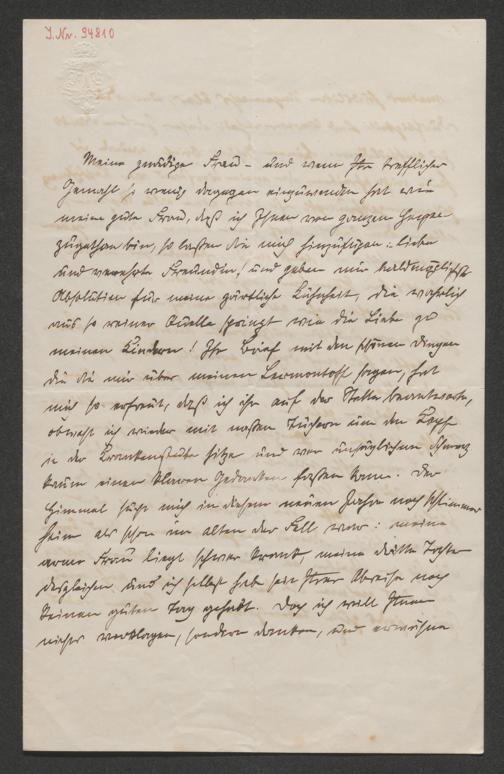 J. Nr. 94810
Meine gnädige Frau – und wenn Ihr trefflicher
Gemahl so wenig dagegen einzuwenden hat wie
meine gute Frau, daß ich Ihnen von ganzem Herzen
zugethan bin, so lassen Sie mich hinzufügen: liebe
und verehrte Freundin, und geben mir baldmöglichst
Absolution für meine zärtliche Kühnheit, die wahrlich
aus so reiner Quelle springt wie die Liebe zu
meinen Kindern! Ihr Brief mit den schönen Dingen
die Sie mir über meinen Lermontoff sagen, hat
mich so erfreut, daß ich ihn auf der Stelle beantworte,
obwohl ich wieder mit nassen Tüchern um den Kopf
in der Krankenstube sitze und vor unsäglichem Schmerz
kaum einen klaren Gedanken fassen kann. Der
Himmel sucht mich in diesem neuen Jahre noch schlimmer
heim als schon im alten der Fall war: meine
arme Frau liegt schwer krank, meine dritte Tochter
desgleichen und ich selbst habe seit Ihrer Abreise noch
keinen guten Tag gehabt. Doch ich will Ihnen
nichts vorklagen, sondern danken, und erwähne